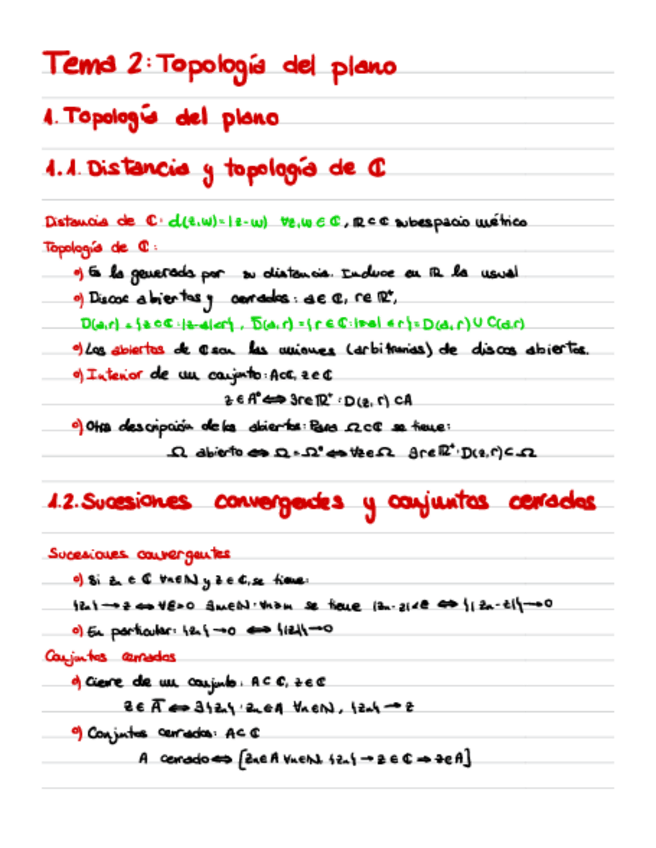 Tema 2: Topología del plano
1. Topología del plano
1.1. Distancia y topología de ℂ
Distancia de ℂ: d(z,w)=|z-w| ∀z,w∈ℂ, ℝ⊂ℂ subespacio métrico
Topología de ℂ:
•) Es la generada por su distancia. Induce en ℝ la usual
•) Discos abiertos y cerrados: a∈ℂ, r∈ℝ⁺,
D(a,r)={z∈ℂ:|z-a|<r}, D̄(a,r)={r∈ℂ:|z-a|≤r}=D(a,r)∪C(a,r)
•) Los abiertos de ℂ son las uniones (arbitrarias) de discos abiertos.
•) Interior de un conjunto: A⊂ℂ, z∈ℂ
z∈A° ⟺ ∃r∈ℝ⁺: D(z,r)⊂A
•) Otra descripción de los abiertos: Para Ω⊂ℂ se tiene:
Ω abierto ⟺ Ω=Ω° ⟺ ∀z∈Ω ∃r∈ℝ⁺: D(z,r)⊂Ω
1.2. Sucesiones convergentes y conjuntos cerrados
Sucesiones convergentes
•) Si zn∈ℂ ∀n∈ℕ y z∈ℂ, se tiene:
{zn}→z ⟺ ∀ε>0 ∃m∈ℕ: ∀n≥m se tiene |zn-z|<ε ⟺ {|zn-z|}→0
•) En particular: {zn}→0 ⟺ {|zn|}→0
Conjuntos cerrados
•) Cierre de un conjunto: A⊂ℂ, z∈ℂ
z∈Ā ⟺ ∃{zn}: zn∈A ∀n∈ℕ, {zn}→z
•) Conjuntos cerrados: A⊂ℂ
A cerrado ⟺ [zn∈A ∀n∈ℕ, {zn}→z∈ℂ ⇒ z∈A]